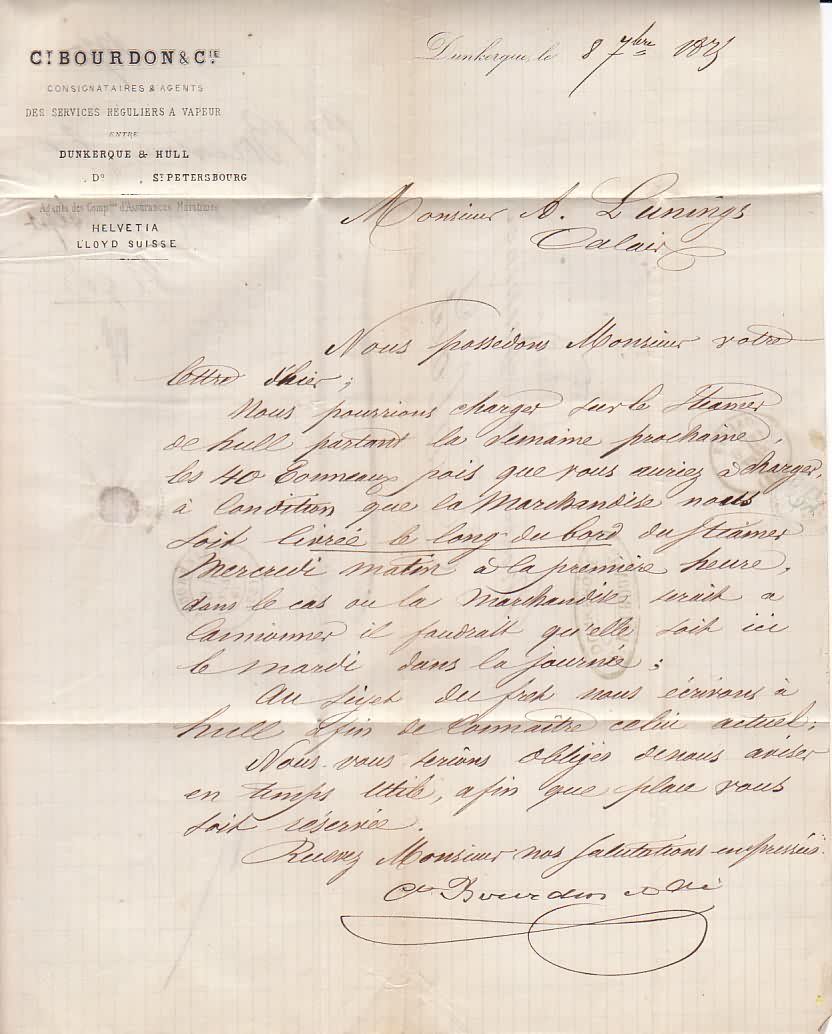 CT. BOURDON & CIE
CONSIGNATAIRES & AGENTS
DES SERVICES RÉGULIERS A VAPEUR
ENTRE
DUNKERQUE & HULL
. Do . ST PETERSBOURG
Agents des Compnies d'Assurances Maritimes
HELVETIA
LLOYD SUISSE
Dunkerque, le 8 7bre 1875
Monsieur A. Lunings
Calais
Nous possédons Monsieur votre
lettre d'hier;
Nous pourrions charger sur le Steamer
de hull partant la semaine prochaine,
les 40 Tonneaux pois que vous auriez à charger,
à Condition que la Marchandise nous
soit livrée le long du bord du Steamer
Mercredi matin à la première heure,
dans le cas ou la Marchandise serait a
Camionner il faudrait qu'elle soit ici
le mardi dans la journée;
Au sujet du fret nous écrivons à
hull afin de Connaître celui actuel;
Nous vous serions obligés de nous aviser
en temps utile, afin que place vous
soit réservée.
Recevez Monsieur nos salutations empressées.
Bourdon & Cie